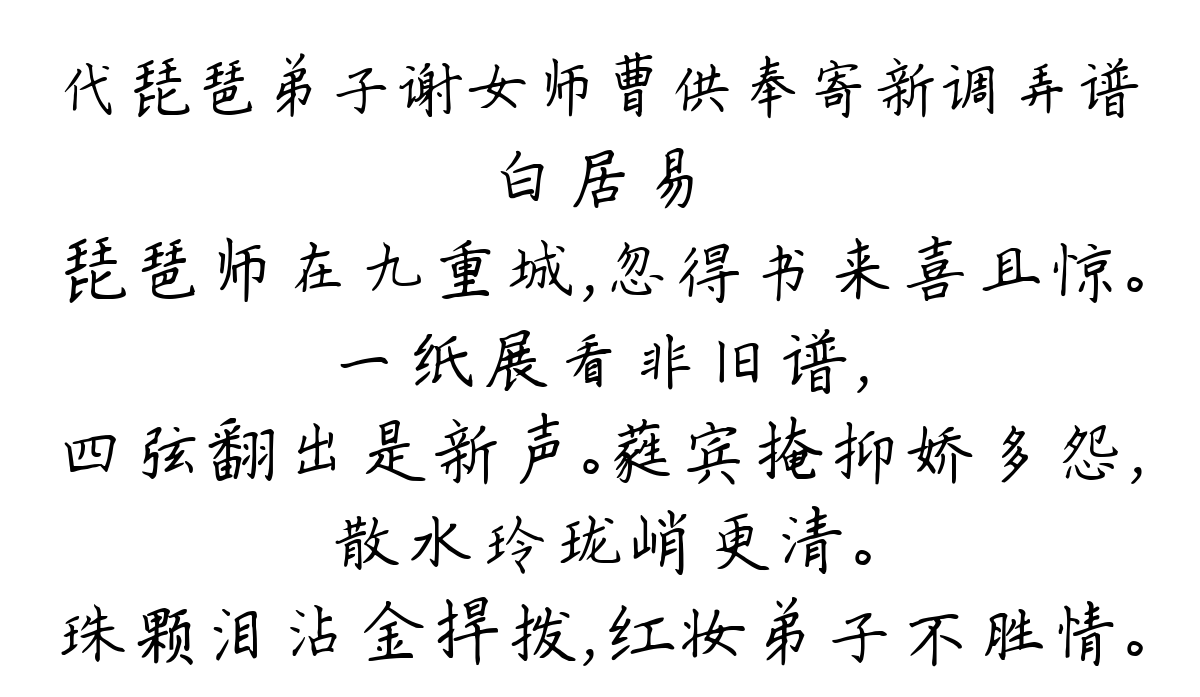 代琵琶弟子谢女师曹供奉寄新调弄谱
白居易
琵琶师在九重城,忽得书来喜且惊。
一纸展看非旧谱,
四弦翻出是新声。蕤宾掩抑娇多怨,
散水玲珑峭更清。
珠颗泪沾金捍拨,红妆弟子不胜情。